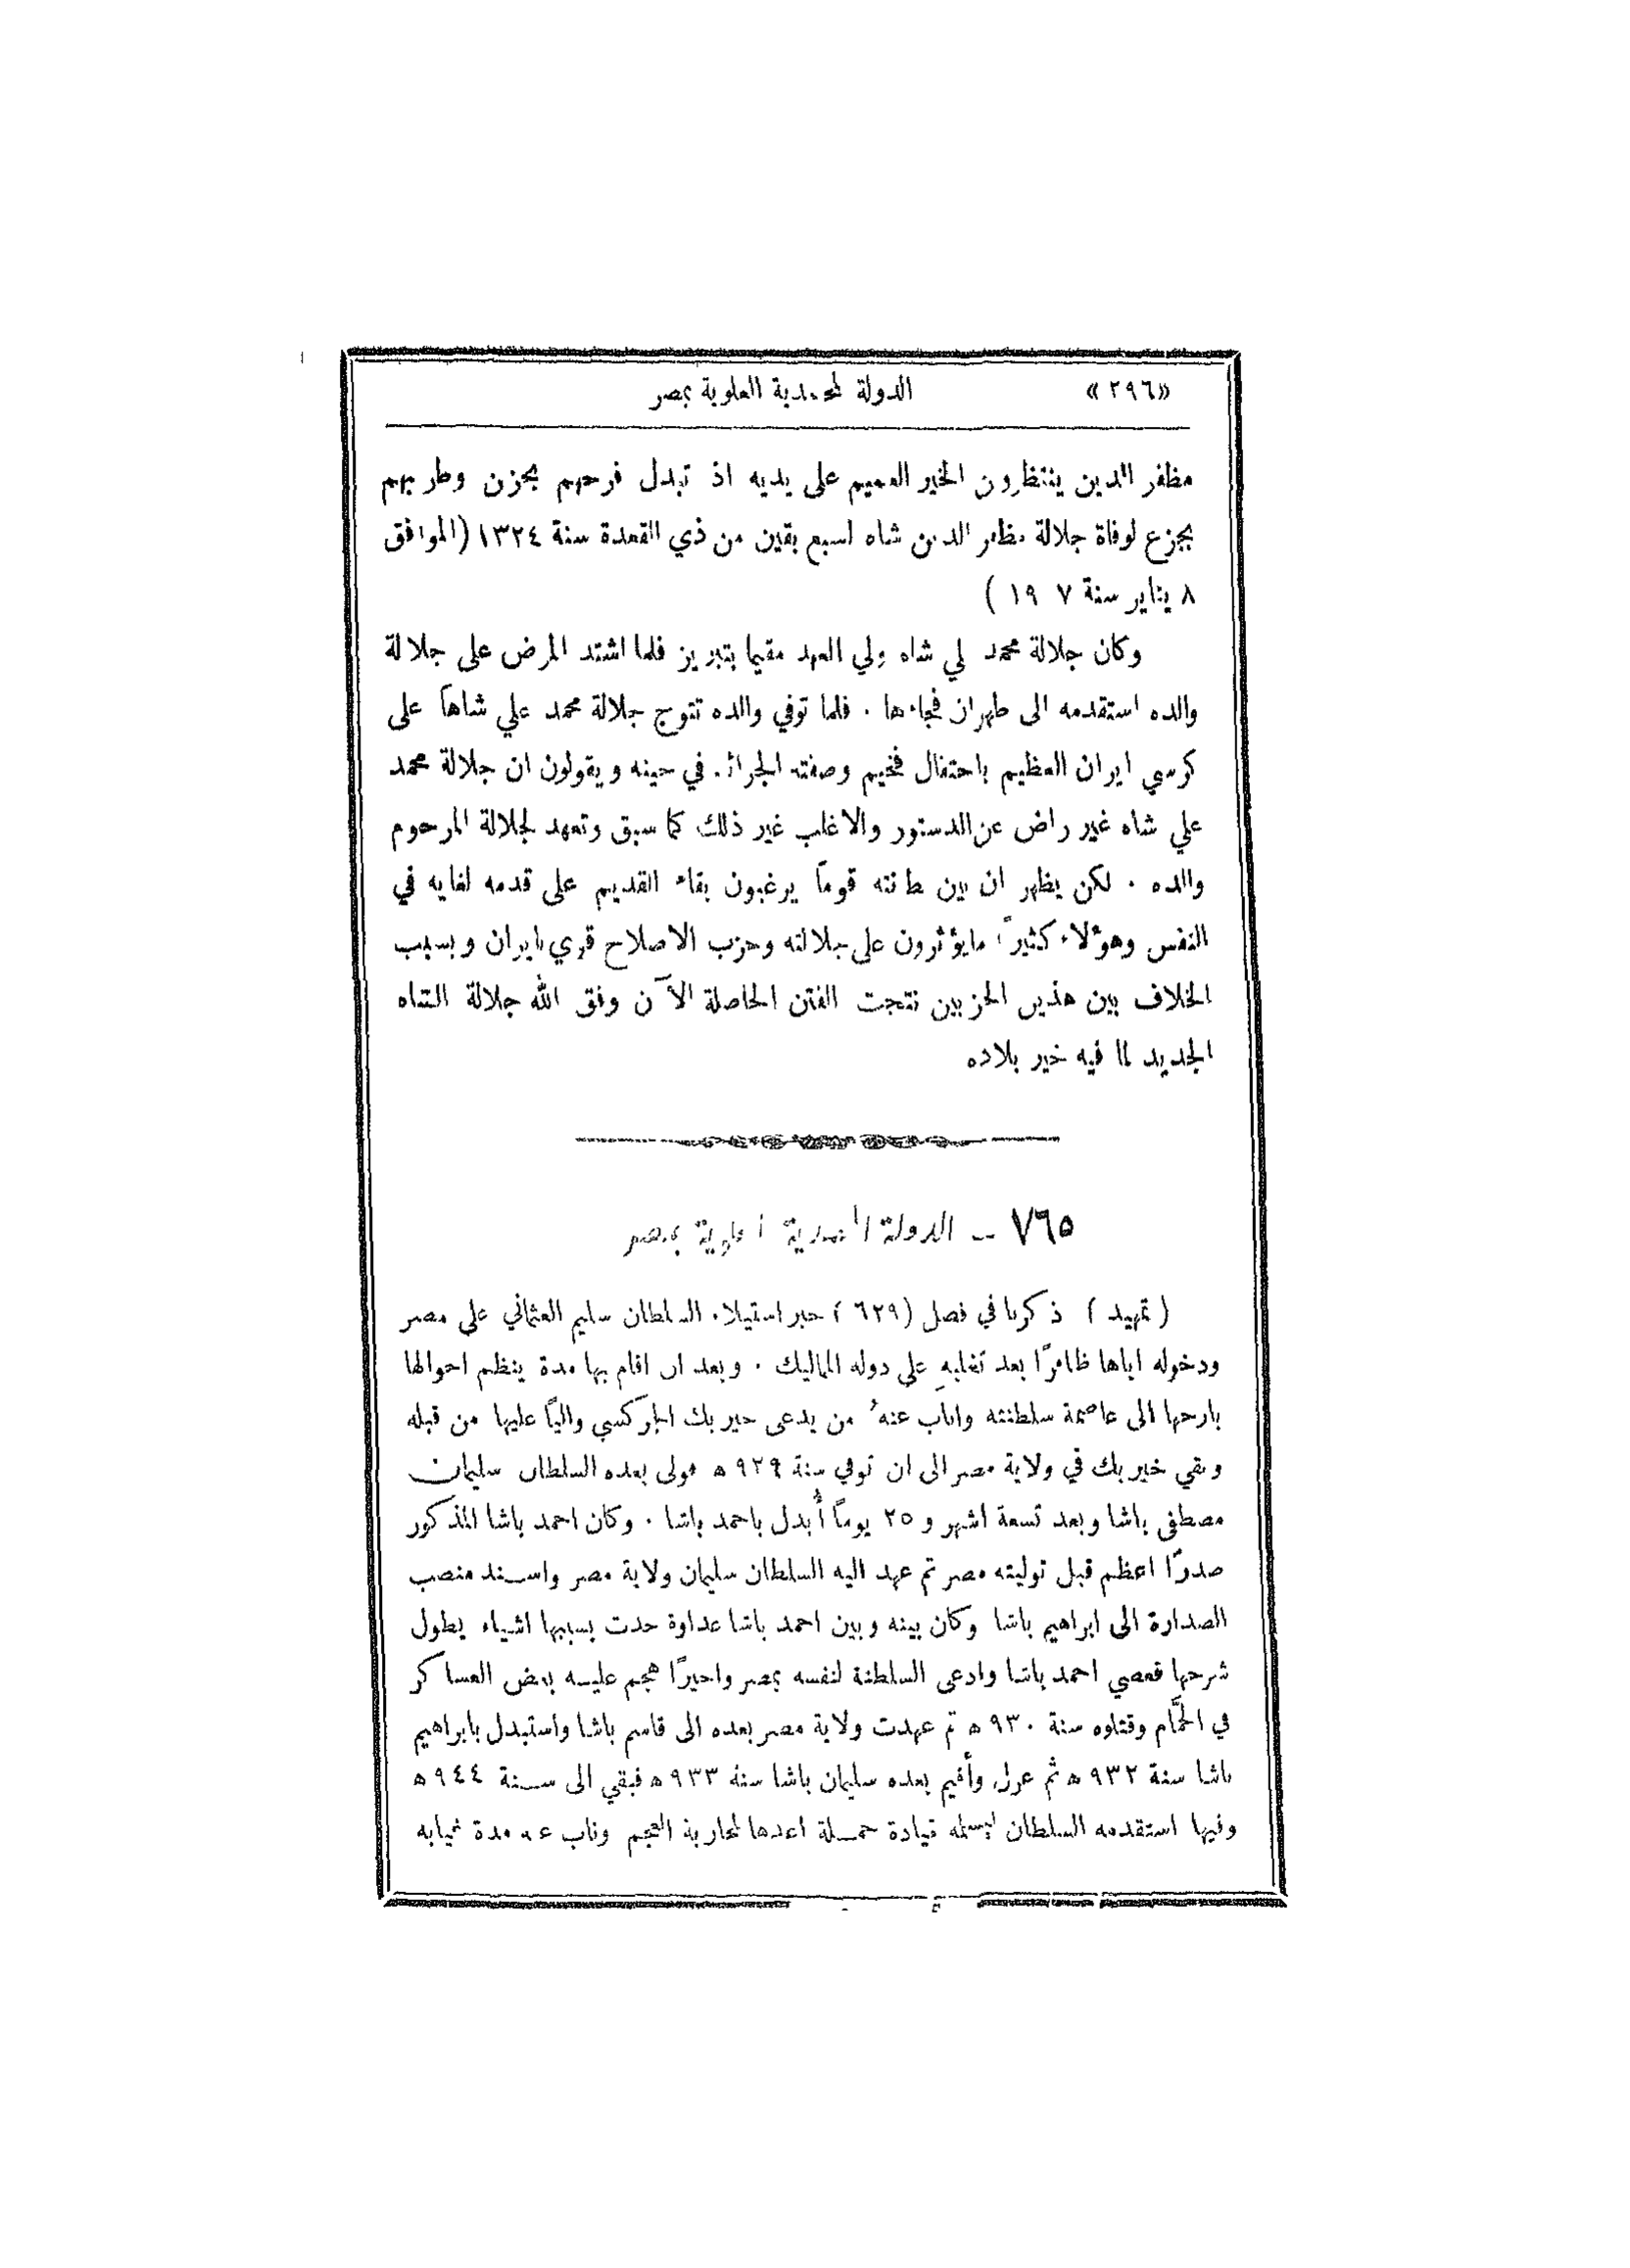 «٢٩٦» الدولة المحمدية العلوية بمصر
مظفر الدين ينتظرون الخير العميم على يديه اذ تبدل فرحهم بحزن وطربهم
بجزع لوفاة جلالة مظفر الدين شاه لسبع بقين من ذي القعدة سنة ١٣٢٤ (الموافق
٨ يناير سنة ٧ ١٩ )
وكان جلالة محمد لي شاه ولي العهد مقيما بتبريز فلما اشتد المرض على جلالة
والده استقدمه الى طهران فجاءها . فلما توفي والده تتوج جلالة محمد علي شاهاً على
كرسي ايران العظيم باحتفال فخيم وصفته الجرائد في حينه ويقولون ان جلالة محمد
علي شاه غير راض عن الدستور والاغلب غير ذلك كما سبق وتعهد لجلالة المرحوم
والده . لكن يظهر ان بين بطانته قوماً يرغبون بقاء القديم على قدمه لغايه في
النفس وهؤلاء كثيراً مايؤثرون على جلالته وحزب الاصلاح قوي بايران وبسبب
الخلاف بين هذين الحزبين نتجت الفتن الحاصلة الآن وفق الله جلالة الشاه
الجديد لما فيه خير بلاده
٧٦٥ – الدولة المحمدية العلوية بمصر
( تمهيد ) ذكرنا في فصل (٦٢٩) خبر استيلاء السلطان سليم العثماني على مصر
ودخوله اياها ظافراً بعد تغلبهِ على دوله المماليك . وبعد ان اقام بها مدة ينظم احوالها
بارحها الى عاصمة سلطنته واناب عنهُ من يدعى خير بك الجركسي والياً عليها من قبله
وبقي خير بك في ولاية مصر الى ان توفي سنة ٩٢٩ هـ فولى بعده السلطان سليمان
مصطفى باشا وبعد تسعة اشهر و ٢٥ يوماً أُبدل باحمد باشا . وكان احمد باشا المذكور
صدراً اعظم قبل توليته مصر ثم عهد اليه السلطان سليمان ولاية مصر واسند منصب
الصدارة الى ابراهيم باشا وكان بينه وبين احمد باشا عداوة حدث بسببها اشياء يطول
شرحها فعصي احمد باشا وادعى السلطنة لنفسه بمصر واخيراً هجم عليه بعض العساكر
في الحمَّام وقتلوه سنة ٩٣٠ هـ ثم عهدت ولاية مصر بعده الى قاسم باشا واستبدل بابراهيم
باشا سنة ٩٣٢ هـ ثم عزل وأقيم بعده سليمان باشا سنة ٩٣٣ هـ فبقي الى سنة ٩٤٤ هـ
وفيها استقدمه السلطان ليسلمه قيادة حملة اعدها لمحاربة العجم وناب عنه مدة غيابه